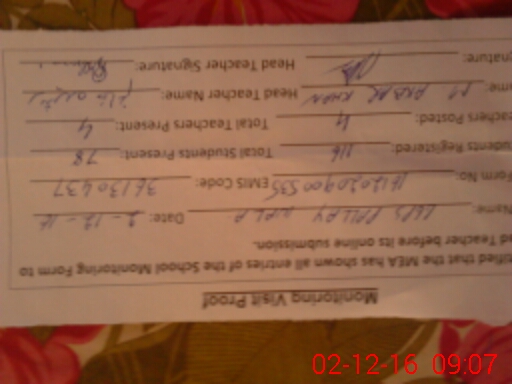 Monitoring Visit Proof
tified that the MEA has shown all entries of the School Monitoring Form to
ad Teacher before its online submission.
Name: GGPS Date: 2-12-16
Form No: EMIS Code: 36130437
udents Registered: 116 Total Students Present: 78
eachers Posted: 4 Total Teachers Present: 4
ame: M. BABAR KHAN Head Teacher Name:
gnature: Head Teacher Signature:
02-12-16 09:07